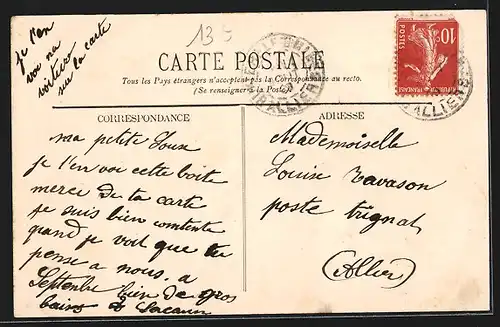 je t'en
voi na
voitiero
sur la carte
135
CARTE POSTALE
Tous les Pays étrangers n'acceptent pas la Correspondance au recto.
(Se renseigner à la Poste)
POSTES
10c
ALLIER
CORRESPONDANCE
ma petite
je t'en voi cette boite
merce de ta carte
je suis bien comtente
quand je voit que tu
pense a nous. a
Septenbre bien de gros
baiser
ADRESSE
Mademoiselle
Louise Tavason
poste
(Allier)